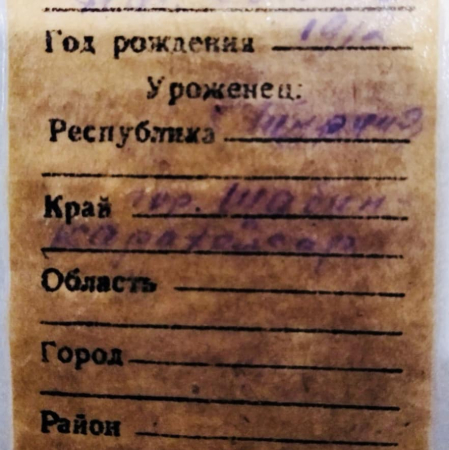 Год рождения 1912
Уроженец:
Республика Турция
Край гор. Шабин-
карахейсар
Область
Город
Район